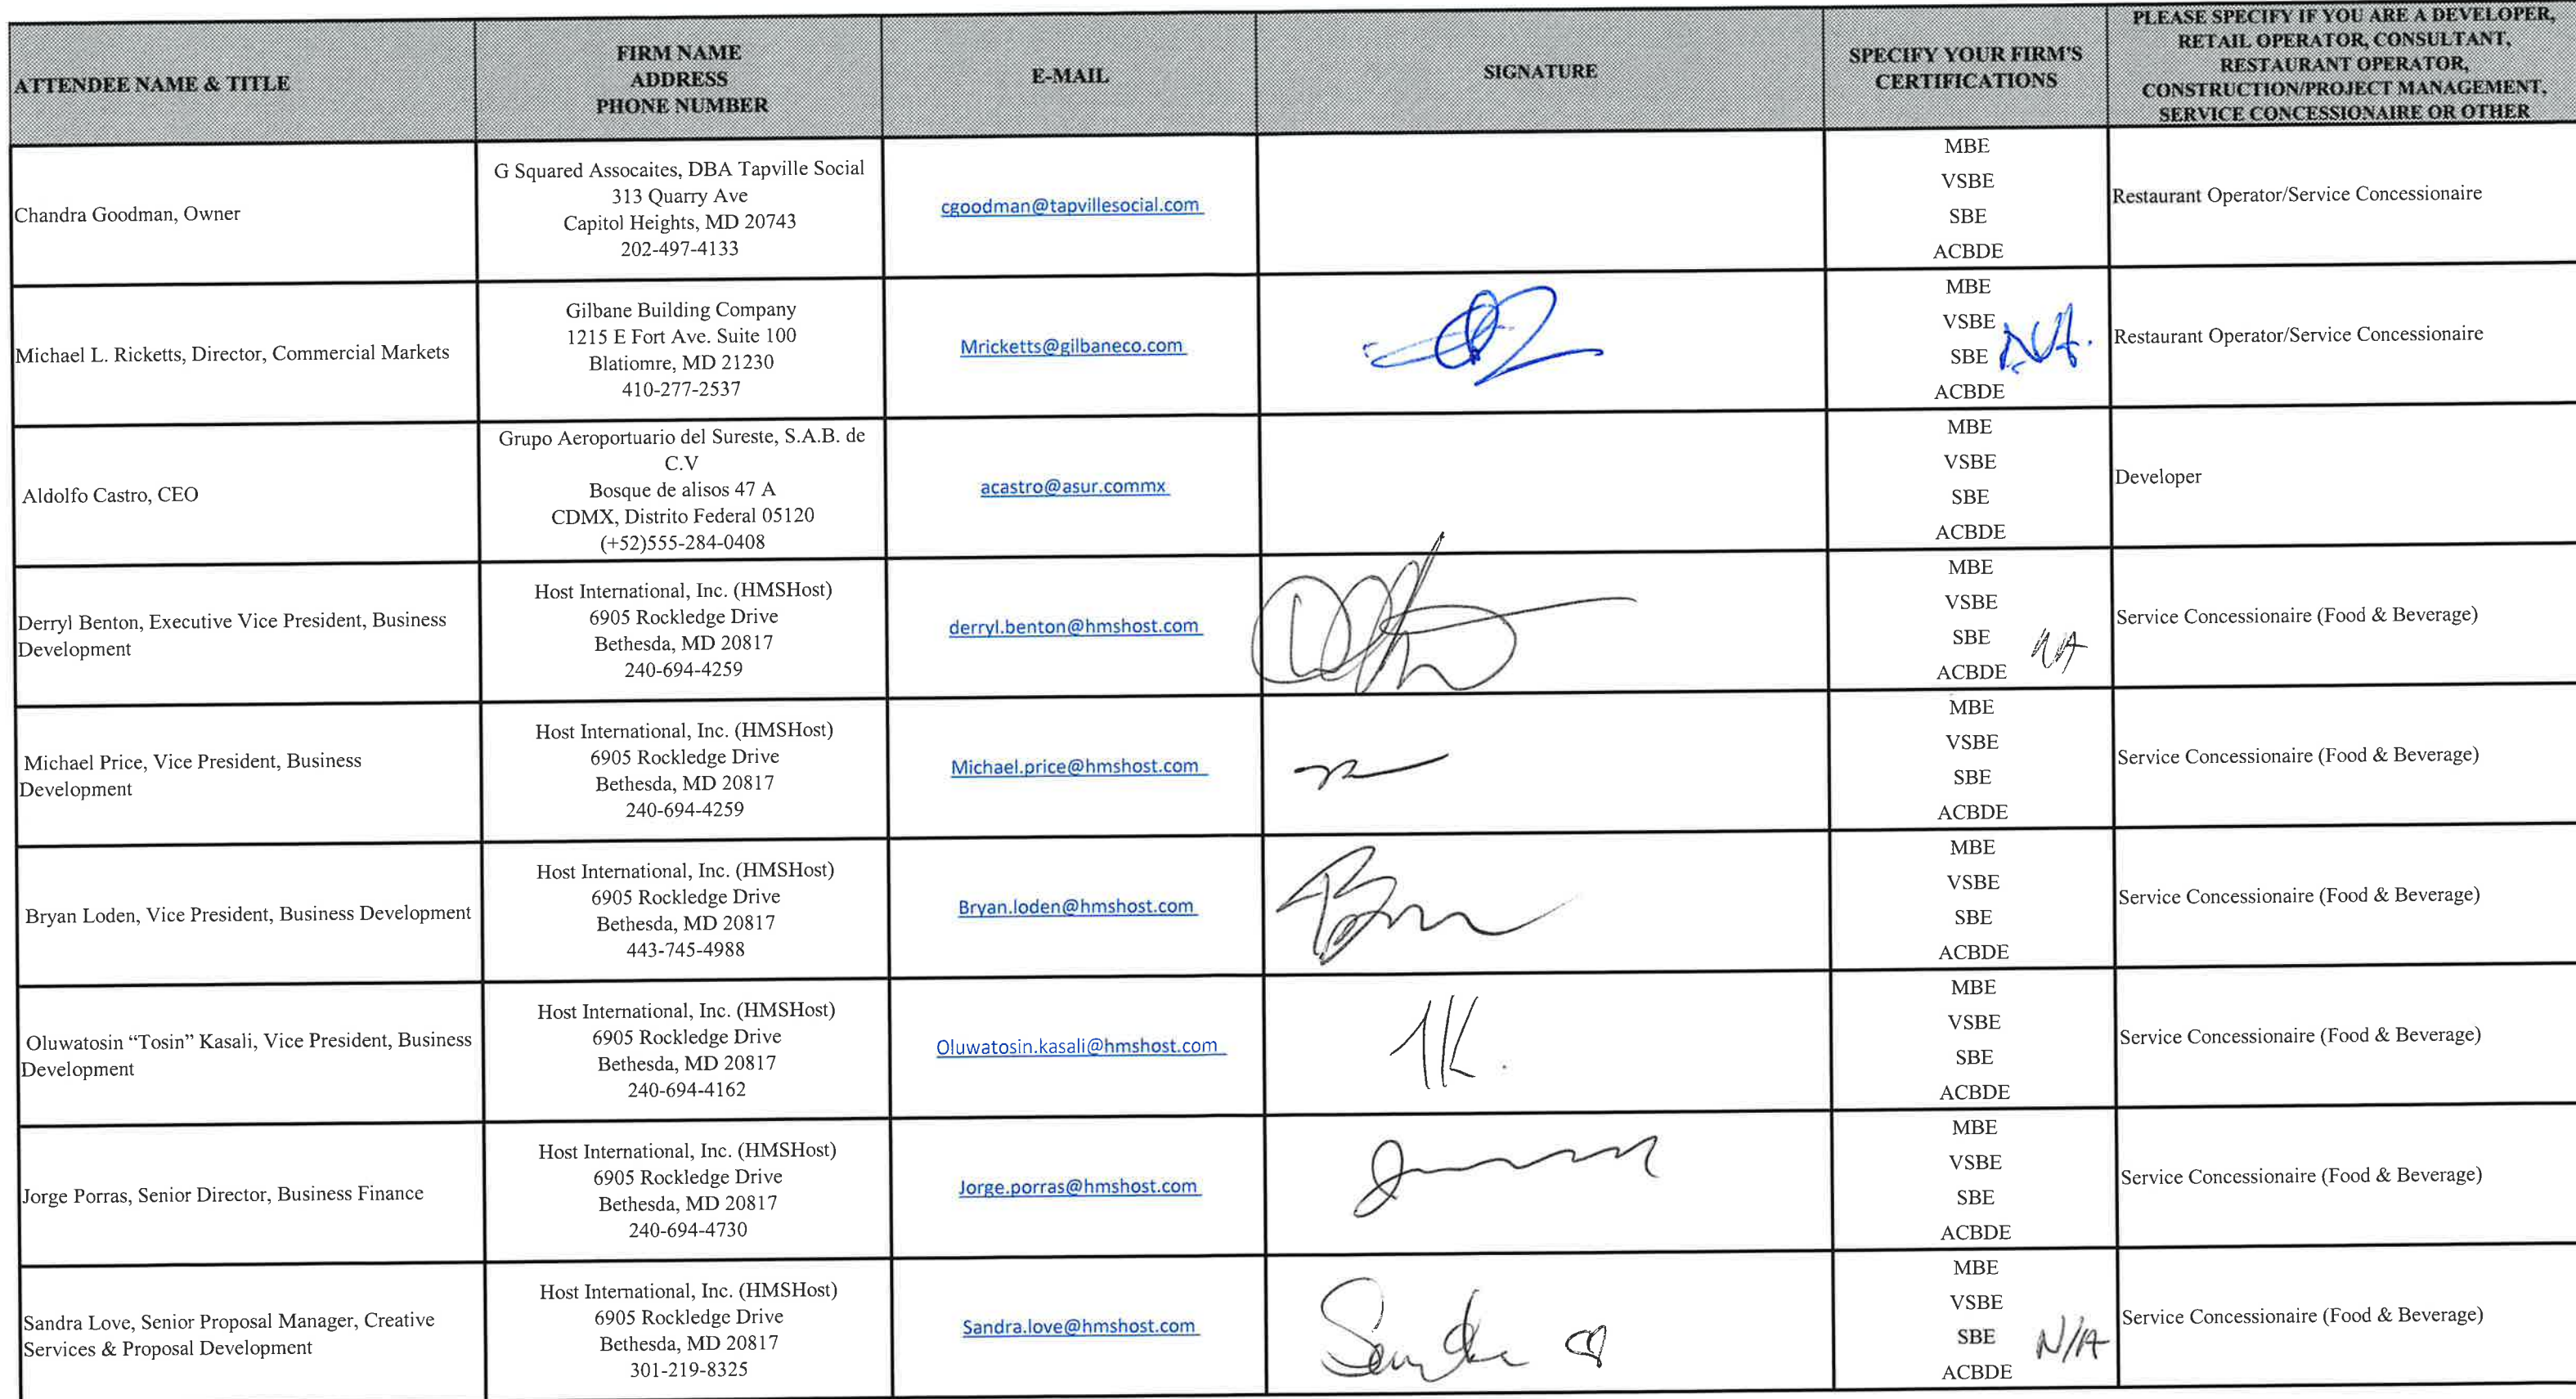 ATTENDEE NAME & TITLE
FIRM NAME
ADDRESS
PHONE NUMBER
E-MAIL
SIGNATURE
SPECIFY YOUR FIRM'S
CERTIFICATIONS
PLEASE SPECIFY IF YOU ARE A DEVELOPER,
RETAIL OPERATOR, CONSULTANT,
RESTAURANT OPERATOR,
CONSTRUCTION/PROJECT MANAGEMENT,
SERVICE CONCESSIONAIRE OR OTHER
Chandra Goodman, Owner
G Squared Assocaites, DBA Tapville Social
313 Quarry Ave
Capitol Heights, MD 20743
202-497-4133
cgoodman@tapvillesocial.com
MBE
VSBE
SBE
ACBDE
Restaurant Operator/Service Concessionaire
Michael L. Ricketts, Director, Commercial Markets
Gilbane Building Company
1215 E Fort Ave. Suite 100
Blatiomre, MD 21230
410-277-2537
Mricketts@gilbaneco.com
MBE
VSBE
SBE
ACBDE
Restaurant Operator/Service Concessionaire
Aldolfo Castro, CEO
Grupo Aeroportuario del Sureste, S.A.B. de
C.V
Bosque de alisos 47 A
CDMX, Distrito Federal 05120
(+52)555-284-0408
acastro@asur.commx
MBE
VSBE
SBE
ACBDE
Developer
Derryl Benton, Executive Vice President, Business
Development
Host International, Inc. (HMSHost)
6905 Rockledge Drive
Bethesda, MD 20817
240-694-4259
derryl.benton@hmshost.com
MBE
VSBE
SBE
ACBDE
NA
Service Concessionaire (Food & Beverage)
Michael Price, Vice President, Business
Development
Host International, Inc. (HMSHost)
6905 Rockledge Drive
Bethesda, MD 20817
240-694-4259
Michael.price@hmshost.com
MBE
VSBE
SBE
ACBDE
Service Concessionaire (Food & Beverage)
Bryan Loden, Vice President, Business Development
Host International, Inc. (HMSHost)
6905 Rockledge Drive
Bethesda, MD 20817
443-745-4988
Bryan.loden@hmshost.com
MBE
VSBE
SBE
ACBDE
Service Concessionaire (Food & Beverage)
Oluwatosin “Tosin” Kasali, Vice President, Business
Development
Host International, Inc. (HMSHost)
6905 Rockledge Drive
Bethesda, MD 20817
240-694-4162
Oluwatosin.kasali@hmshost.com
TK.
MBE
VSBE
SBE
ACBDE
Service Concessionaire (Food & Beverage)
Jorge Porras, Senior Director, Business Finance
Host International, Inc. (HMSHost)
6905 Rockledge Drive
Bethesda, MD 20817
240-694-4730
Jorge.porras@hmshost.com
MBE
VSBE
SBE
ACBDE
Service Concessionaire (Food & Beverage)
Sandra Love, Senior Proposal Manager, Creative
Services & Proposal Development
Host International, Inc. (HMSHost)
6905 Rockledge Drive
Bethesda, MD 20817
301-219-8325
Sandra.love@hmshost.com
Sandra
MBE
VSBE
SBE
ACBDE
N/A
Service Concessionaire (Food & Beverage)